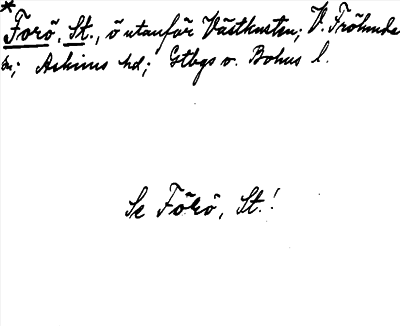 * Forö, St., ö utanför Västkusten; V. Frölunda
sn; Askims hd; Gtbgs o. Bohus l.
Se Förö, St.!